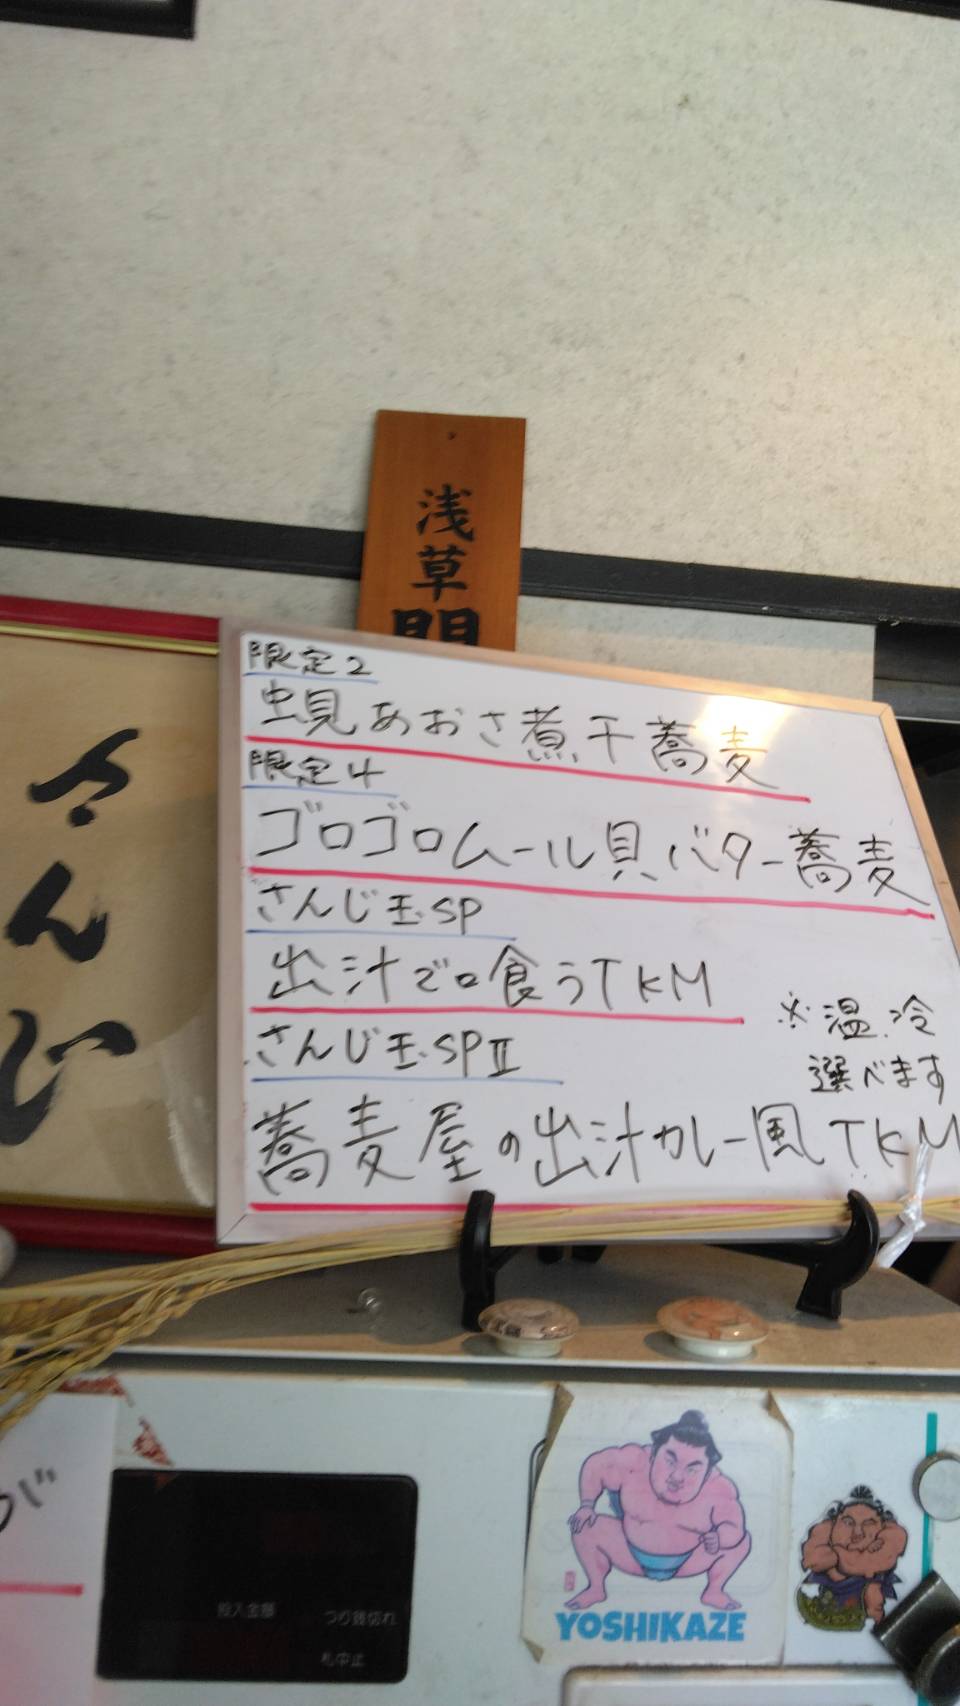 浅草
限定2
蜆あおさ煮干蕎麦
限定4
ゴロゴロムール貝バター蕎麦
さんじ玉SP
出汁で口食うTKM
さんじ玉SPⅡ
※温冷
選べます
蕎麦屋の出汁カレー風TKM
さんじ
投入金額
つり銭切れ
札中止
YOSHIKAZE